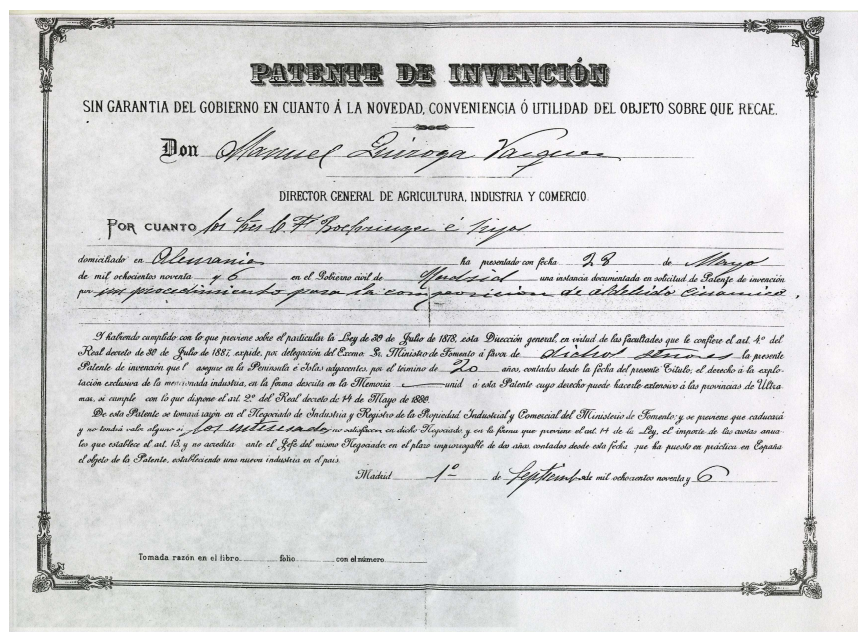 PATENTE DE INVENCIÓN
SIN GARANTIA DEL GOBIERNO EN CUANTO Á LA NOVEDAD, CONVENIENCIA Ó UTILIDAD DEL OBJETO SOBRE QUE RECAE.
Don Manuel Quiroga Vazquez
DIRECTOR GENERAL DE AGRICULTURA, INDUSTRIA Y COMERCIO.
POR CUANTO los Sres C. F. Boehringer é hijos
domiciliado en Alemania ha presentado con fecha 23 de Mayo
de mil ochocientos noventa y 6 en el Gobierno civil de Madrid una instancia documentada en solicitud de Patente de invención
por un procedimiento para la composicion de aldehido cinamico.
Y habiendo cumplido con lo que previene sobre el particular la Ley de 30 de Julio de 1878, esta Dirección general, en virtud de las facultades que le confiere el art. 4º del
Real decreto de 30 de Julio de 1887, expide, por delegación del Excmo. Sr. Ministro de Fomento á favor de dichos señores la presente
Patente de invención que l asegure en la Península é Islas adyacentes, por el término de 20 años, contados desde la fecha del presente Título, el derecho á la explo-
tación exclusiva de la mencionada industria, en la forma descrita en la Memoria unid á esta Patente cuyo derecho puede hacerlo extensivo á las provincias de Ultra-
mar, si cumple con lo que dispone el art. 2º del Real decreto de 14 de Mayo de 1880.
De esta Patente se tomará razón en el Negociado de Industria y Registro de la Propiedad Industrial y Comercial del Ministerio de Fomento; y se previene que caducará
y no tendrá valor alguno si los interesados no satisfacen en dicho Negociado y en la forma que previene el art. 14 de la Ley, el importe de las cuotas anua-
les que establece el art. 13, y no acredita ante el Jefe del mismo Negociado, en el plazo improrogable de dos años, contados desde esta fecha, que ha puesto en práctica en España
el objeto de la Patente, estableciendo una nueva industria en el país.
Madrid 1º de Septiembre de mil ochocientos noventa y 6
Tomada razón en el libro folio con el número